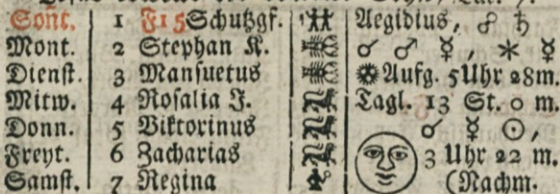 Sont. 1 F 15 Schutzgf. Aegidius, ☍ ♄
Mont. 2 Stephan K. ☌ ♂ ☿, ⚹ ☿
Dienst. 3 Mansuetus Aufg. 5 Uhr 28 m.
Mitw. 4 Rosalia J. Tagl. 13 St. 0 m.
Donn. 5 Viktorinus ☌ ☿ ☉,
Freyt. 6 Zacharias 3 Uhr 22 m.
Samst. 7 Regina (Nachm.